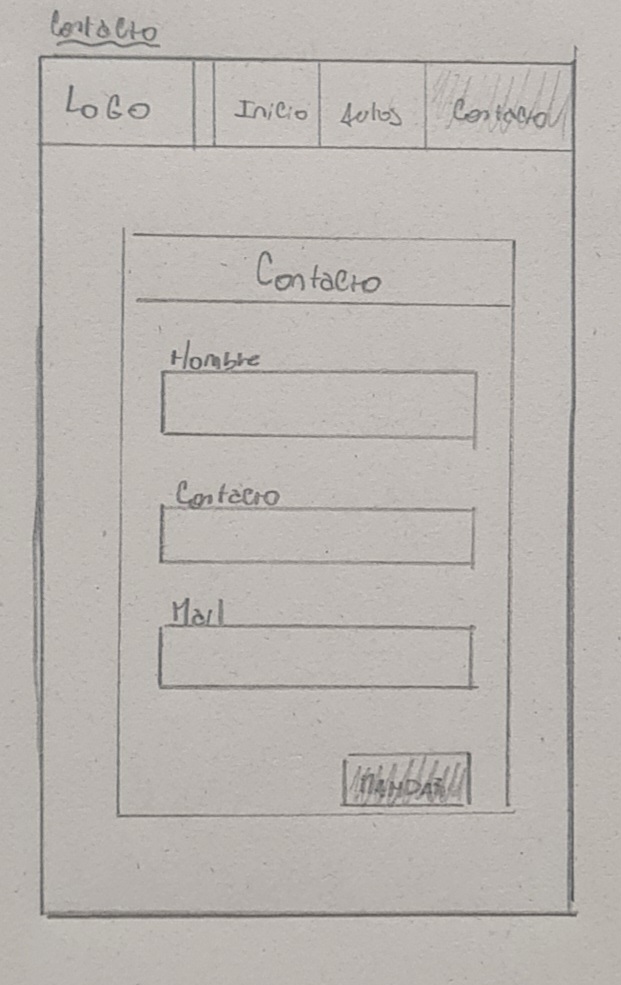 Contacto
LOGO Inicio Autos Contacto
Contacto
Nombre
Contacto
Mail
MANDAR